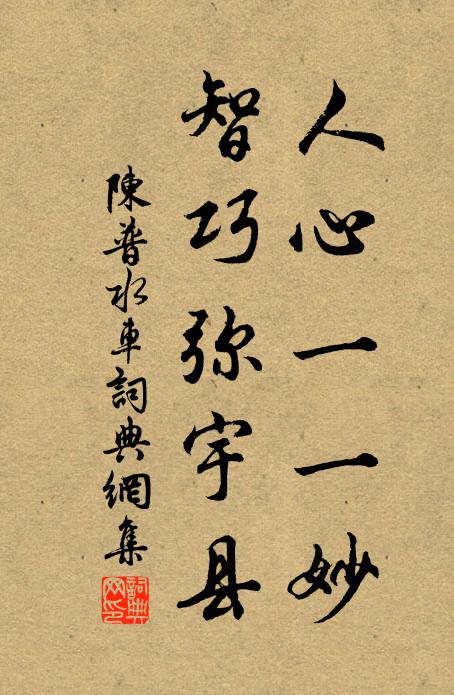 人心一一妙
智巧弥宇县
陳普水車詞典網集
詞典网印